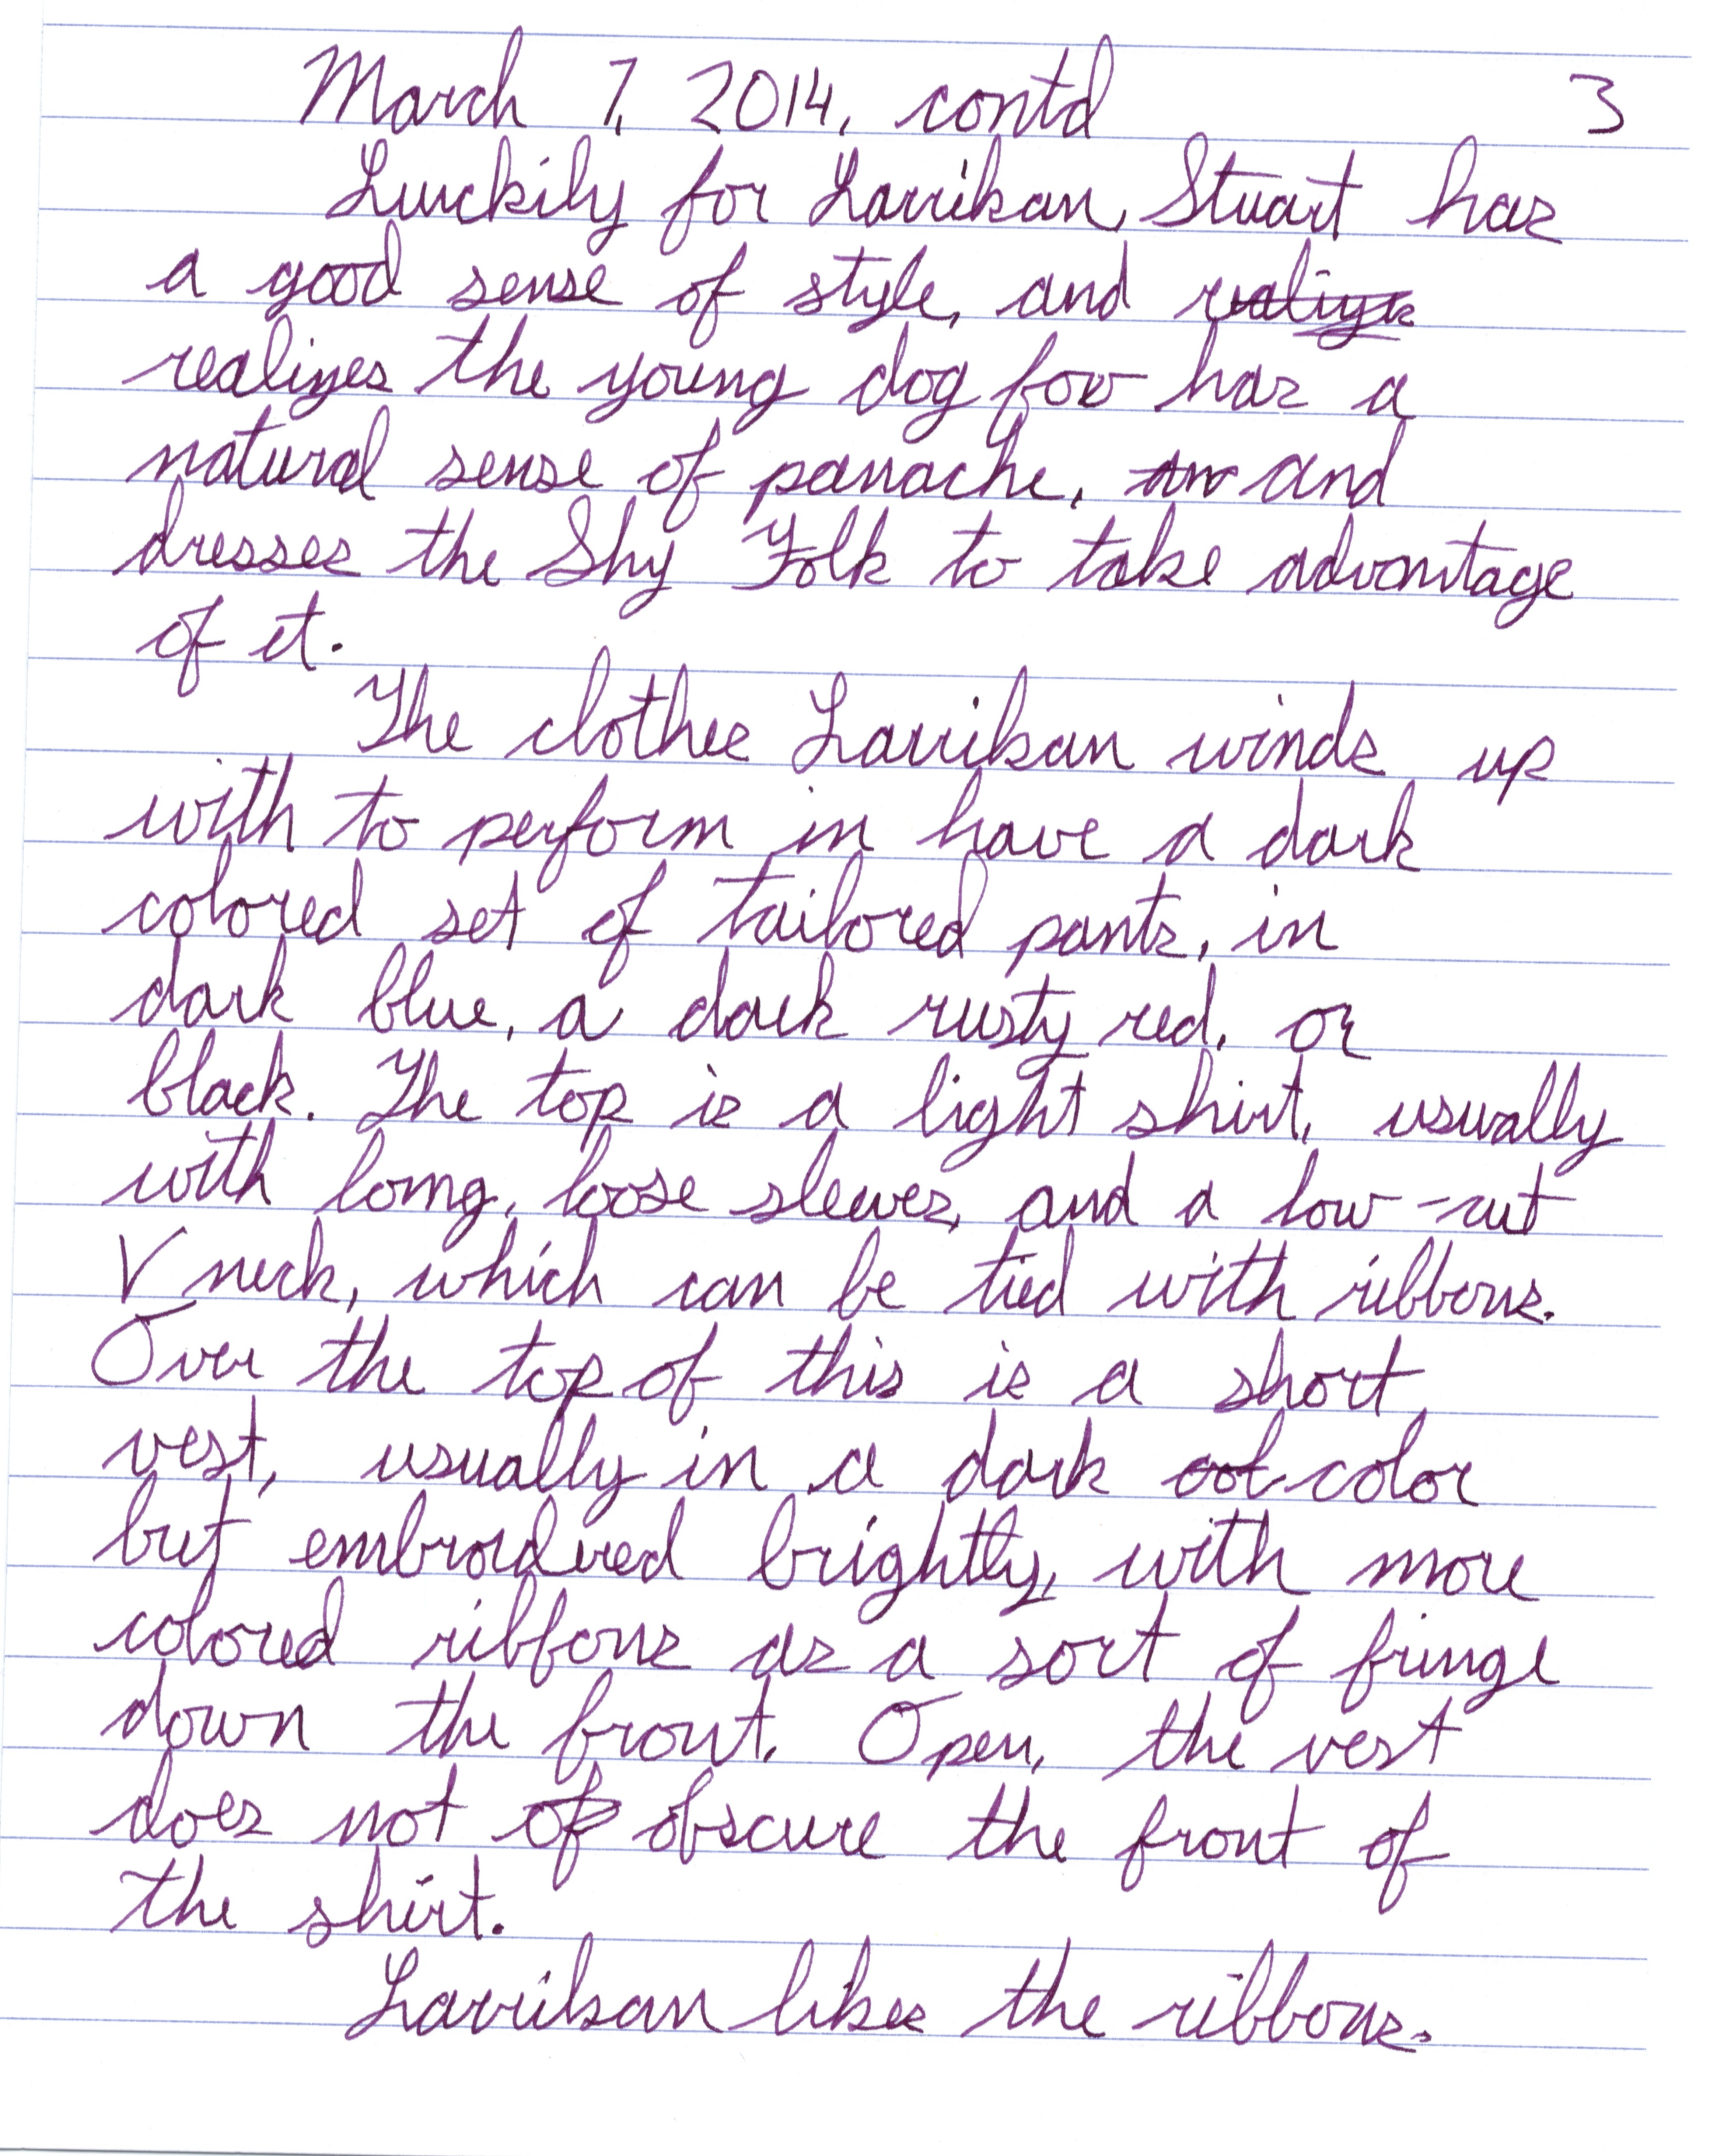 March 7, 2014, contd 3
Luckily for Larrikan, Stuart has
a good sense of style, and
realizes the young dog fox has a
natural sense of panache, and
dresses the Shy Folk to take advantage
of it.
The clothes Larrikan winds up
with to perform in have a dark
colored set of tailored pants, in
dark blue, a dark rusty red, or
black. The top is a light shirt, usually
with long, loose sleeves, and a low-cut
V neck, which can be tied with ribbons.
Over the top of this is a short
vest, usually in a dark color
but embroidered brightly, with more
colored ribbons as a sort of fringe
down the front. Open, the vest
does not obscure the front of
the shirt.
Larrikan likes the ribbons.